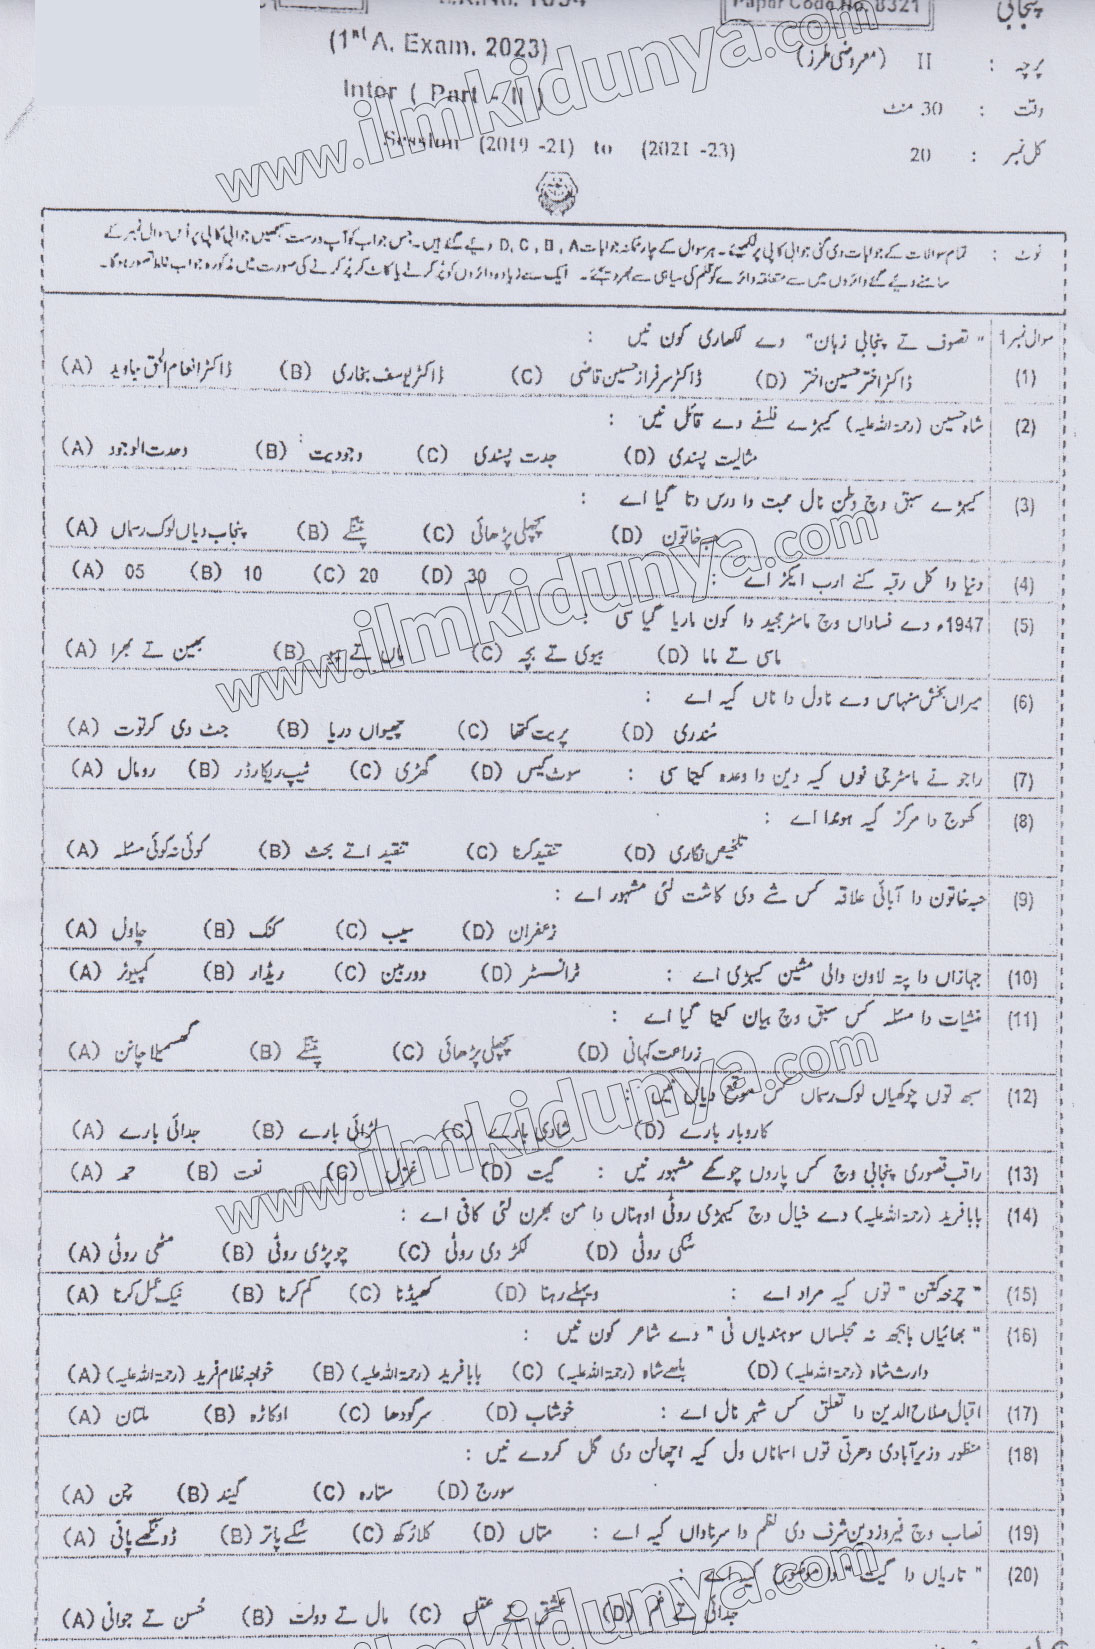 Paper Code No. 8321
پنجابی
(1st A. Exam. 2023)
پرچہ : II (معروضی طرز)
Inter ( Part - II )
وقت : 30 منٹ
Session (2019 -21) to (2021 -23)
کل نمبر : 20
نوٹ : تمام سوالات کے جوابات دی گئی جوابی کاپی پر لکھیئے۔ ہر سوال کے چار ممکنہ جوابات D, C, B, A دیئے گئے ہیں۔ جس جواب کو آپ درست سمجھیں جوابی کاپی پر اُس سوال نمبر کے
سامنے دیئے گئے دائروں میں سے متعلقہ دائرے کو قلم کی سیاہی سے بھر دیجئے۔ ایک سے زیادہ دائروں کو پُر کرنے یا کاٹ کر پُر کرنے کی صورت میں مذکورہ جواب غلط تصور ہوگا۔
سوال نمبر 1 " تصوف تے پنجابی زبان" دے لکھاری کون نیں :
(1) (A) ڈاکٹر انعام الحق جاوید (B) ڈاکٹر یوسف بخاری (C) ڈاکٹر سرفراز حسین قاضی (D) ڈاکٹر اختر حسین اختر
(2) شاہ حسین (رحمۃ اللہ علیہ) کیہڑے فلسفے دے قائل نیں :
(A) وحدت الوجود (B) وجودیت (C) جدت پسندی (D) مثالیت پسندی
(3) کیہڑے سبق وچ وطن نال محبت دا درس دتا گیا اے :
(A) پنجاب دیاں لوک رسماں (B) پتنگے (C) پچھلی پڑھائی (D) حبہ خاتون
(4) دنیا دا کل رقبہ کنے ارب ایکڑ اے : (A) 05 (B) 10 (C) 20 (D) 30
(5) 1947ء دے فساداں وچ ماسٹر مجید دا کون ماریا گیا سی :
(A) بھین تے بھرا (B) ماں تے پیو (C) بیوی تے بچہ (D) ماسی تے ماما
(6) میراں بخش منہاس دے ناول دا ناں کیہ اے :
(A) جٹ دی کرتوت (B) چھیواں دریا (C) پریت کتھا (D) مُندری
(7) راجو نے ماسٹر جی نوں کیہ دین دا وعدہ کیتا سی : (A) رومال (B) ٹیپ ریکارڈر (C) گھڑی (D) سوٹ کیس
(8) کھوج دا مرکز کیہ ہوندا اے :
(A) کوئی نہ کوئی مسئلہ (B) تنقید اتے بحث (C) تنقید کرنا (D) تلخیص نگاری
(9) حبہ خاتون دا آبائی علاقہ کس شے دی کاشت لئی مشہور اے :
(A) چاول (B) کنک (C) سیب (D) زعفران
(10) جہازاں دا پتہ لاون والی مشین کیہڑی اے : (A) کمپیوٹر (B) ریڈار (C) دوربین (D) ٹرانسسٹر
(11) منشیات دا مسئلہ کس سبق وچ بیان کیتا گیا اے :
(A) گھسمیلا چانن (B) پتنگے (C) پچھلی پڑھائی (D) زراعت کہانی
(12) سبھ توں چوکھیاں لوک رسماں کس موقع دیاں نیں :
(A) جدائی بارے (B) لڑائی بارے (C) شادی بارے (D) کاروبار بارے
(13) راقب قصوری پنجابی وچ کس پاروں چوکھے مشہور نیں : (A) حمد (B) نعت (C) غزل (D) گیت
(14) بابا فرید (رحمۃ اللہ علیہ) دے خیال وچ کیہڑی روٹی اوہناں دا من بھرن لئی کافی اے :
(A) مٹھی روٹی (B) چوپڑی روٹی (C) لکڑ دی روٹی (D) سُکی روٹی
(15) " چرخہ کتن " توں کیہ مراد اے : (A) نیک عمل کرنا (B) کم کرنا (C) کھیڈنا (D) ویہلے رہنا
(16) " بھائیاں باہجھ نہ مجلساں سوہندیاں نی " دے شاعر کون نیں :
(A) خواجہ غلام فرید (رحمۃ اللہ علیہ) (B) بابا فرید (رحمۃ اللہ علیہ) (C) بلھے شاہ (رحمۃ اللہ علیہ) (D) وارث شاہ (رحمۃ اللہ علیہ)
(17) اقبال صلاح الدین دا تعلق کس شہر نال اے : (A) ملتان (B) اوکاڑہ (C) سرگودھا (D) خوشاب
(18) منظور وزیر آبادی دھرتی توں اسماناں ول کیہ اچھالن دی گل کردے نیں :
(A) چن (B) گیند (C) ستارہ (D) سورج
(19) نصاب وچ فیروز دین شرف دی نظم دا سرناواں کیہ اے : (A) ڈونگھے پانی (B) سُکے پاتر (C) کلا رُکھ (D) متاں
(20) " تاریاں دا گیت " دا موضوع کیہ اے :
(A) حُسن تے جوانی (B) مال تے دولت (C) عشق تے عقل (D) جدائی تے غم
www.ilmkidunya.com
www.ilmkidunya.com
www.ilmkidunya.com
www.ilmkidunya.com